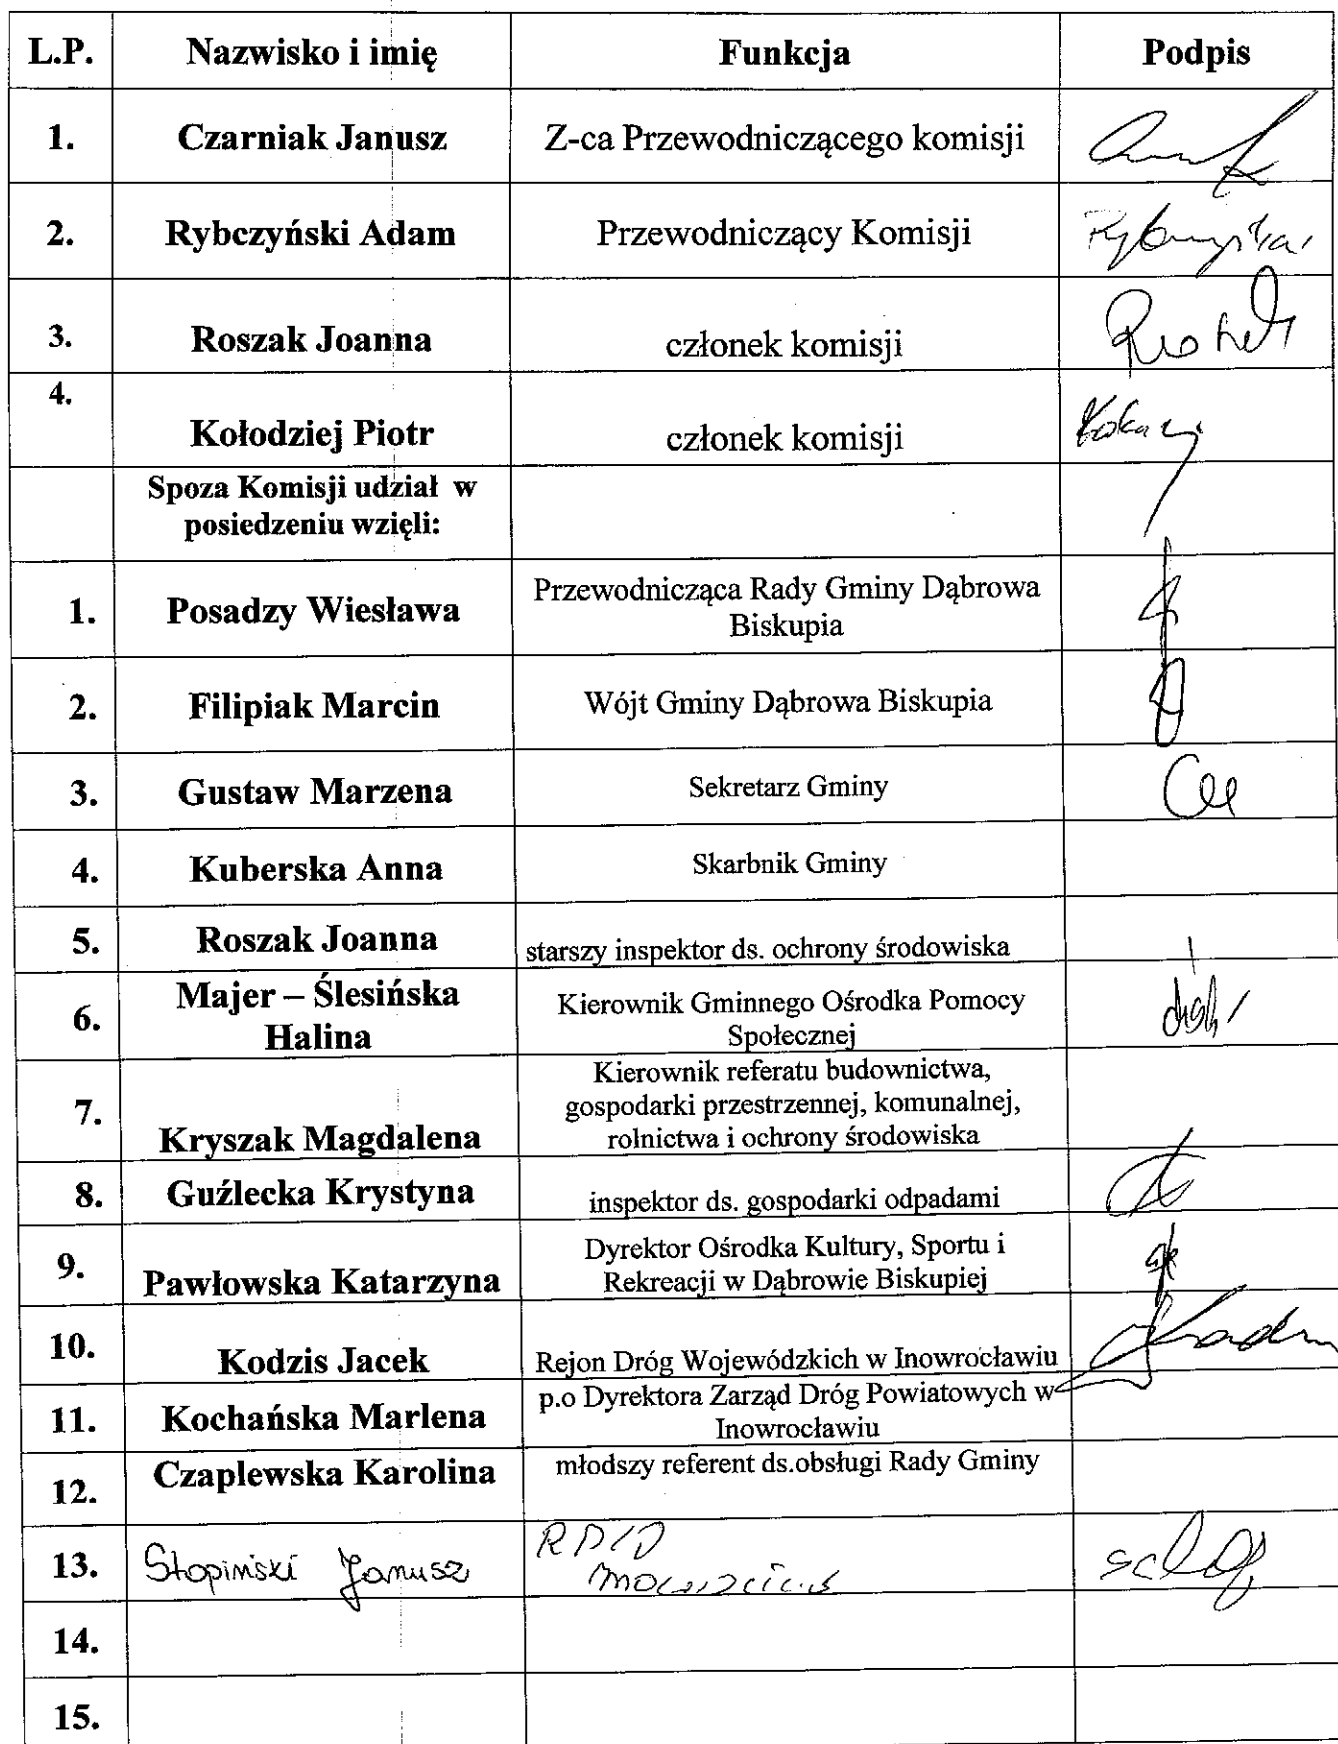 L.P. Nazwisko i imię Funkcja Podpis
1. Czarniak Janusz Z-ca Przewodniczącego komisji
2. Rybczyński Adam Przewodniczący Komisji
3. Roszak Joanna członek komisji
4.
Kołodziej Piotr członek komisji
Spoza Komisji udział w
posiedzeniu wzięli:
1. Posadzy Wiesława Przewodnicząca Rady Gminy Dąbrowa
Biskupia
2. Filipiak Marcin Wójt Gminy Dąbrowa Biskupia
3. Gustaw Marzena Sekretarz Gminy
4. Kuberska Anna Skarbnik Gminy
5. Roszak Joanna starszy inspektor ds. ochrony środowiska
6. Majer – Ślesińska
Halina Kierownik Gminnego Ośrodka Pomocy
Społecznej
7. Kryszak Magdalena Kierownik referatu budownictwa,
gospodarki przestrzennej, komunalnej,
rolnictwa i ochrony środowiska
8. Guźlecka Krystyna inspektor ds. gospodarki odpadami
9. Pawłowska Katarzyna Dyrektor Ośrodka Kultury, Sportu i
Rekreacji w Dąbrowie Biskupiej
10. Kodzis Jacek Rejon Dróg Wojewódzkich w Inowrocławiu
11. Kochańska Marlena p.o Dyrektora Zarząd Dróg Powiatowych w
Inowrocławiu
12. Czaplewska Karolina młodszy referent ds.obsługi Rady Gminy
13. Stopiński Janusz
14.
15.